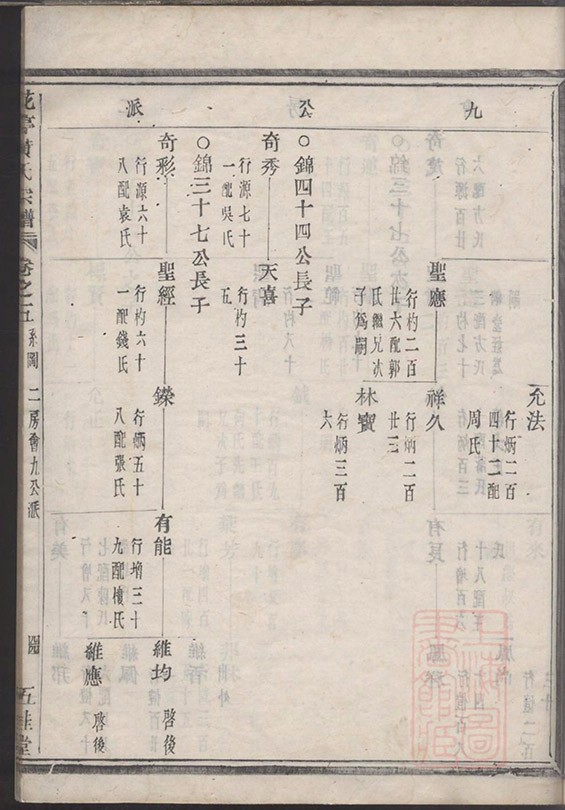 九公派
允法
行炳二百
四十二配
周氏
聖應
行杓二百
廿六配郭
氏繼兄次
子爲嗣
祥久
行炳二百
廿三
林寶
行炳三百
六
○錦四十四公長子
奇秀
行源七十
一配吳氏
天喜
行杓三十
五
○錦三十七公長子
奇彤
行源六十
八配袁氏
聖經
行杓六十
一配錢氏
鑠
行炳五十
八配張氏
有能
行增三十
九配樓氏
維均
啓後
維應
啓後
宗譜
卷之五
系圖
二房會九公派
五桂堂